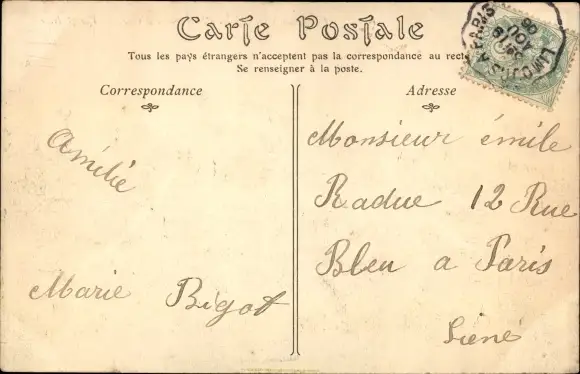 Carte Postale
Tous les pays étrangers n'acceptent pas la correspondance au recto
Se renseigner à la poste.
Correspondance
Adresse
Amélie
Marie Bigot
Monsieur émile
Radue 12 Rue
Bleu a Paris
Siene